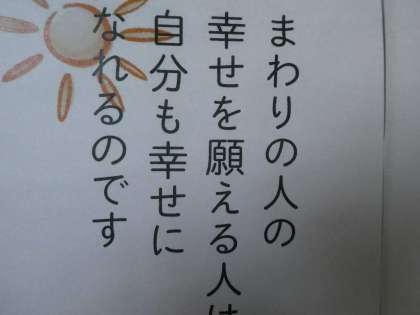 まわりの人の
幸せを願える人は
自分も幸せに
なれるのです